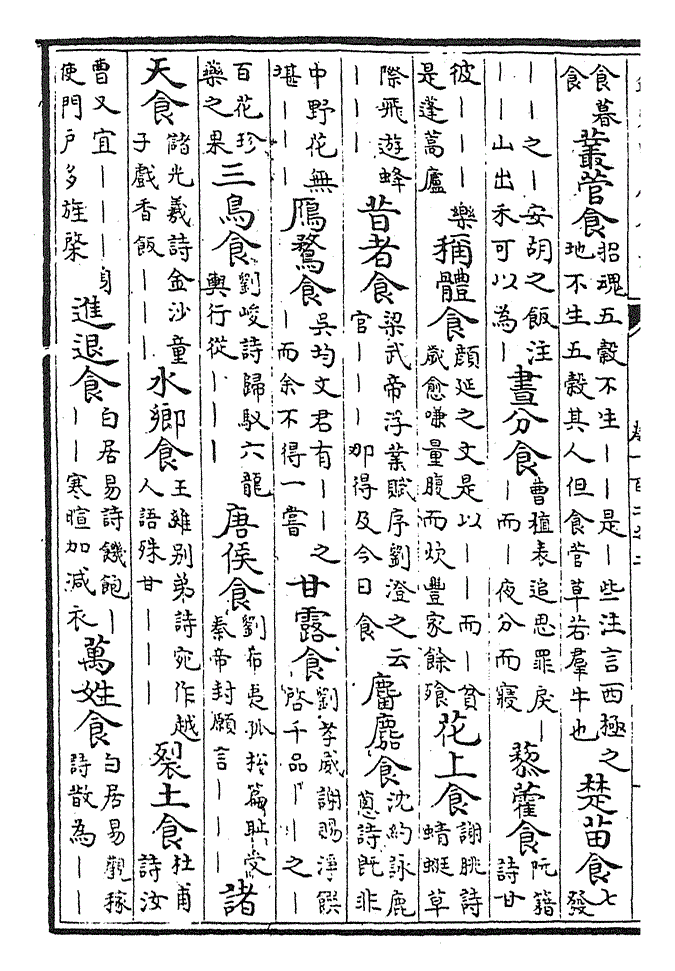 食暮
食
叢菅食
招魂五穀不生——是—些注言西極之
地不生五穀其人但食菅草若羣牛也
楚苗食
七
發
——之—安胡之飯注
——山出禾可以為—
晝分食
曹植表追思罪戾—
—而—夜分而寢
藜藿食
阮籍
詩甘
彼———樂
是蓬蒿廬
稱體食
顔延之文是以——而—貧
歲愈嗛量腹而炊豐家餘飧
花上食
謝朓詩
蜻蜓草
際飛遊蜂
————
昔者食
梁武帝浮業賦序劉澄之云
官———那得及今日食
麏麚食
沈約詠鹿
蔥詩既非
中野花無
堪———
鴈鶩食
吳均文君有——之
—而余不得一嘗
甘露食
劉孝威謝賜淨饌
啓千品——之—
百花珍
藥之果
三鳥食
劉峻詩歸馭六龍
輿行從———
唐侯食
劉希夷孤松篇恥受
秦帝封願言———
諸
天食
儲光羲詩金沙童
子戲香飯———
水鄉食
王維别弟詩宛作越
人語殊甘———
裂土食
杜甫
詩汝
曹又宜———身
使門户多旌棨
進退食
白居易詩饑飽—
——寒暄加減衣
萬姓食
白居易觀稼
詩散為——